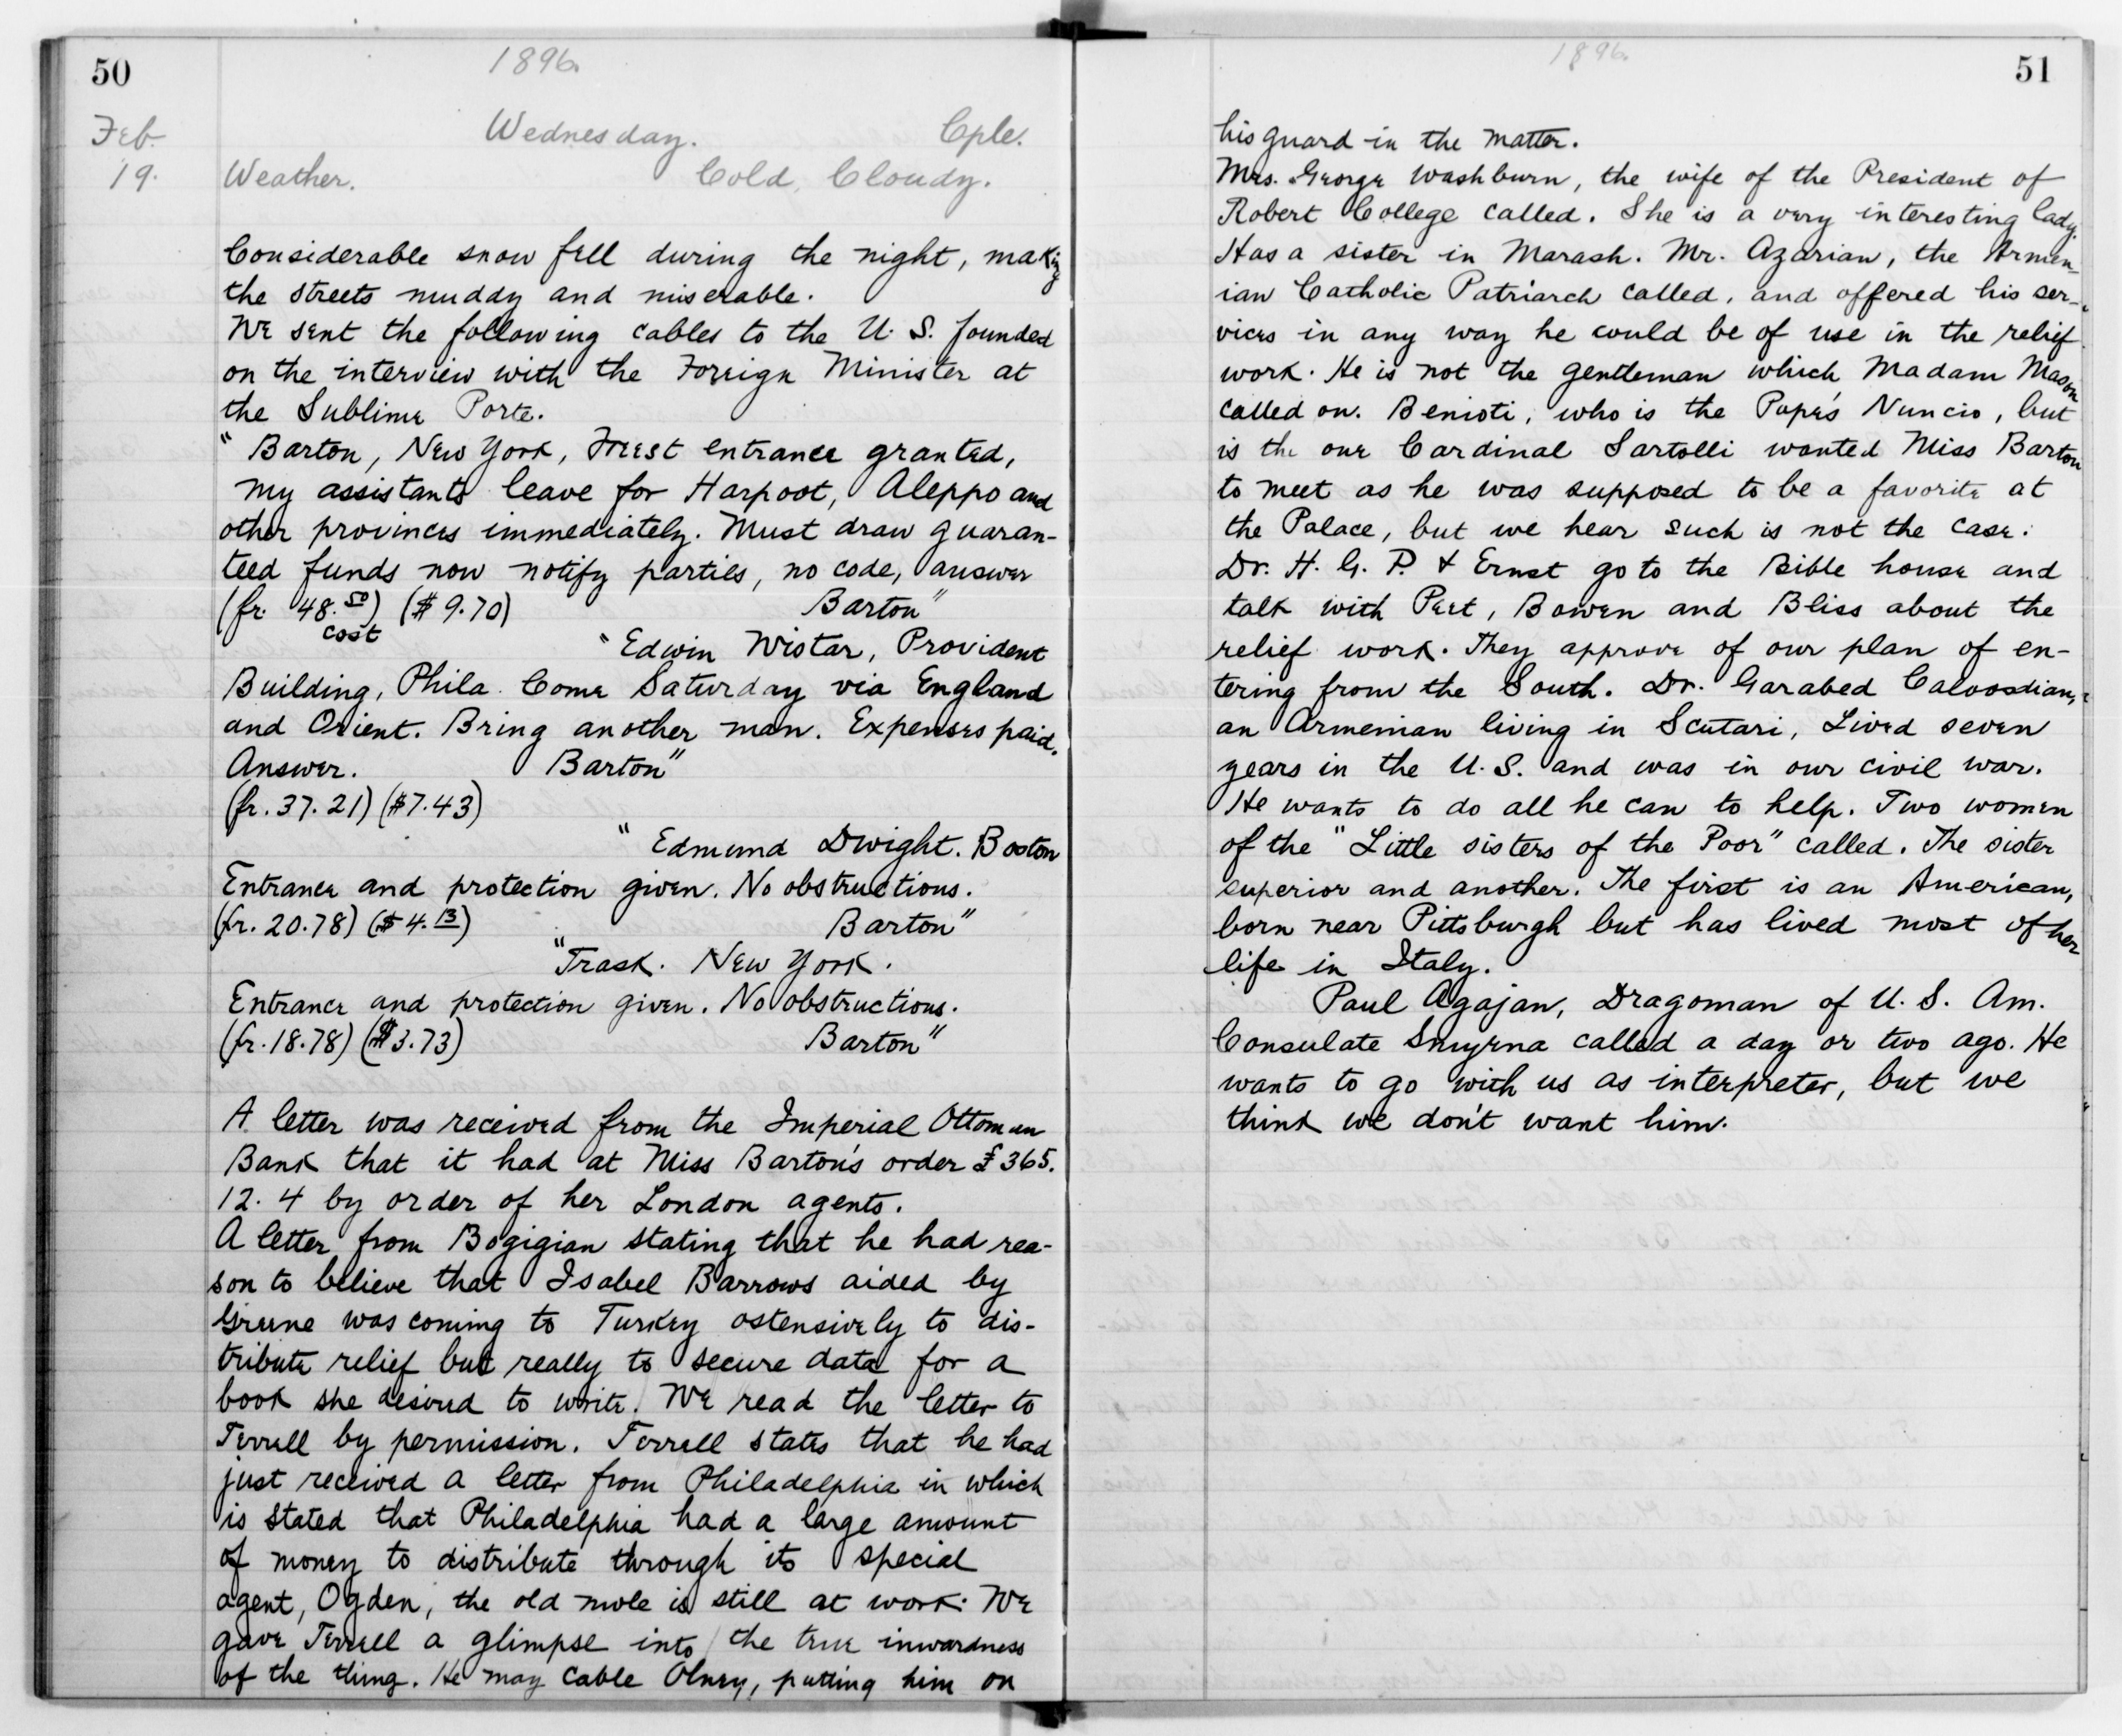 50
1896.
Feb. Wednesday. Cple.
19. Weather. Cold, Cloudy.
Considerable snow fell during the night, making
the streets muddy and miserable.
We sent the following cables to the U. S. founded
on the interview with the Foreign Minister at
the Sublime Porte.
"Barton, New York, Frest entrance granted,
my assistants leave for Harpoot, Aleppo and
other provinces immediately. Must draw guaran-
teed funds now notify parties, no code, answer
(fr. 48.50) ($9.70) Barton"
cost
"Edwin Wistar, Provident
Building, Phila. Come Saturday via England
and Orient. Bring another man. Expenses paid.
Answer. Barton"
(fr. 37.21) ($7.43)
"Edmund Dwight. Boston
Entrance and protection given. No obstructions.
(fr. 20.78) ($4.13) Barton"
"Trask. New York.
Entrance and protection given. No obstructions.
(fr. 18.78) ($3.73) Barton"
A letter was received from the Imperial Ottoman
Bank that it had at Miss Barton's order £365.
12. 4 by order of her London agents.
A letter from Bogigian stating that he had rea-
son to believe that Isabel Barrows aided by
Greene was coming to Turkey ostensively to dis-
tribute relief but really to secure data for a
book she desired to write. We read the letter to
Terrell by permission. Terrell states that he had
just received a letter from Philadelphia in which
is stated that Philadelphia had a large amount
of money to distribute through its special
agent, Ogden, the old mole is still at work. We
gave Terrell a glimpse into the true inwardness
of the thing. He may cable Olney, putting him on
1896.
51
his guard in the matter.
Mrs. George Washburn, the wife of the President of
Robert College called. She is a very interesting lady.
Has a sister in Marash. Mr. Azarian, the Armen-
ian Catholic Patriarch called, and offered his ser-
vices in any way he could be of use in the relief
work. He is not the gentleman which Madam Mason
called on. Benioti, who is the Pope's Nuncio, but
is the one Cardinal Sartolli wanted Miss Barton
to meet as he was supposed to be a favorite at
the Palace, but we hear such is not the case.
Dr. H. G. P. & Ernst go to the Bible house and
talk with Peet, Bowen and Bliss about the
relief work. They approve of our plan of en-
tering from the South. Dr. Garabed Caloosdian,
an Armenian living in Scutari, Lived seven
years in the U. S. and was in our civil war.
He wants to do all he can to help. Two women
of the "Little sisters of the Poor" called. The sister
superior and another. The first is an American,
born near Pittsburgh but has lived most of her
life in Italy.
Paul Agajan, Dragoman of U. S. Am.
Consulate Smyrna called a day or two ago. He
wants to go with us as interpreter, but we
think we don't want him.